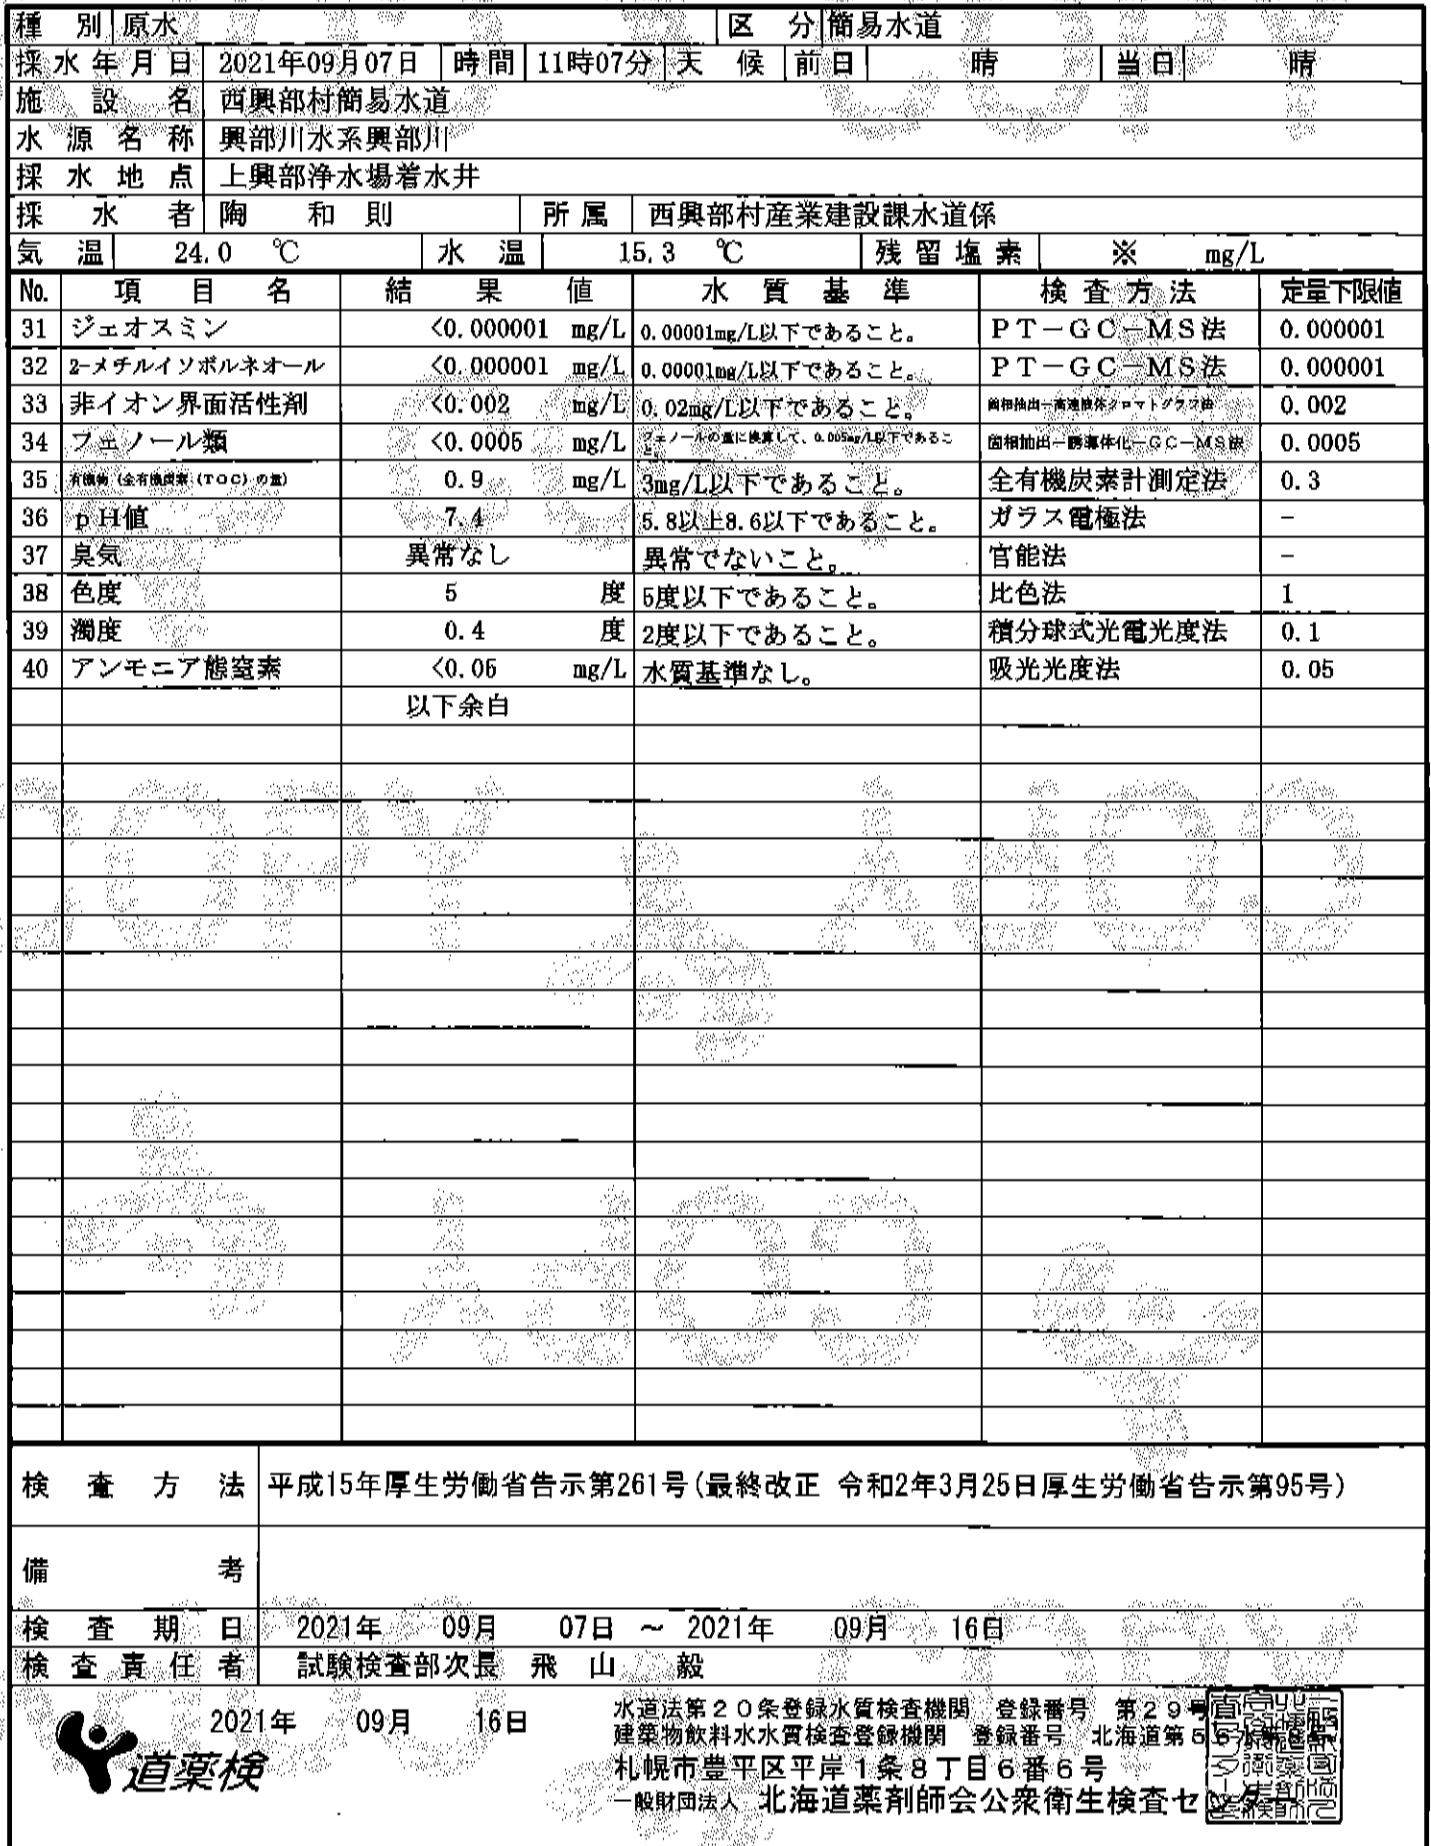 種別 原水 区分 簡易水道
採水年月日 2021年09月07日 時間 11時07分 天候 前日 晴 当日 晴
施設名 西興部村簡易水道
水源名称 興部川水系興部川
採水地点 上興部浄水場着水井
採水者 陶 和則 所属 西興部村産業建設課水道係
気温 24.0 ℃ 水温 15.3 ℃ 残留塩素 ※ mg/L
No. 項目名 結果値 水質基準 検査方法 定量下限値
31 ジェオスミン <0.000001 mg/L 0.00001mg/L以下であること。 PT－GC－MS法 0.000001
32 2-メチルイソボルネオール <0.000001 mg/L 0.00001mg/L以下であること。 PT－GC－MS法 0.000001
33 非イオン界面活性剤 <0.002 mg/L 0.02mg/L以下であること。 固相抽出－高速液体クロマトグラフ法 0.002
34 フェノール類 <0.0005 mg/L フェノールの量に換算して、0.005mg/L以下であること。 固相抽出－誘導体化－GC－MS法 0.0005
35 有機物（全有機炭素（TOC）の量） 0.9 mg/L 3mg/L以下であること。 全有機炭素計測定法 0.3
36 pH値 7.4 5.8以上8.6以下であること。 ガラス電極法 －
37 臭気 異常なし 異常でないこと。 官能法 －
38 色度 5 度 5度以下であること。 比色法 1
39 濁度 0.4 度 2度以下であること。 積分球式光電光度法 0.1
40 アンモニア態窒素 <0.05 mg/L 水質基準なし。 吸光光度法 0.05
以下余白
検査方法 平成15年厚生労働省告示第261号(最終改正 令和2年3月25日厚生労働省告示第95号)
備考
検査期日 2021年 09月 07日 ～ 2021年 09月 16日
検査責任者 試験検査部次長 飛山 毅
道薬検
2021年 09月 16日
水道法第20条登録水質検査機関 登録番号 第29号
建築物飲料水水質検査登録機関 登録番号 北海道第5
札幌市豊平区平岸1条8丁目6番6号
一般財団法人 北海道薬剤師会公衆衛生検査センター
COPY